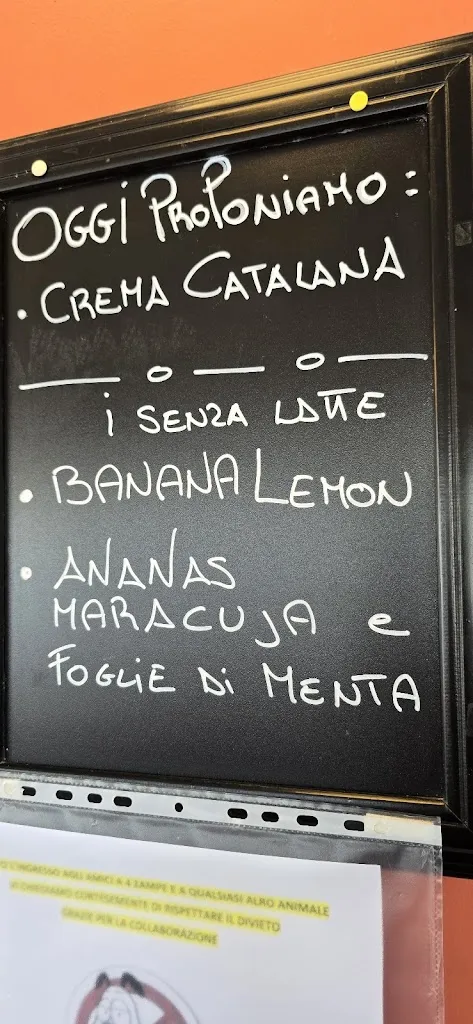 OGGI PROPONIAMO:
• CREMA CATALANA
i SENZA LATTE
• BANANA LEMON
• ANANAS
MARACUJA e
FOGLIE Di MENTA
INGRESSO AGLI AMICI A 4 ZAMPE E A QUALSIASI ALRO ANIMALE
VI CHIEDIAMO CORTESEMENTE DI RISPETTARE IL DIVIETO
GRAZIE PER LA COLLABORAZIONE